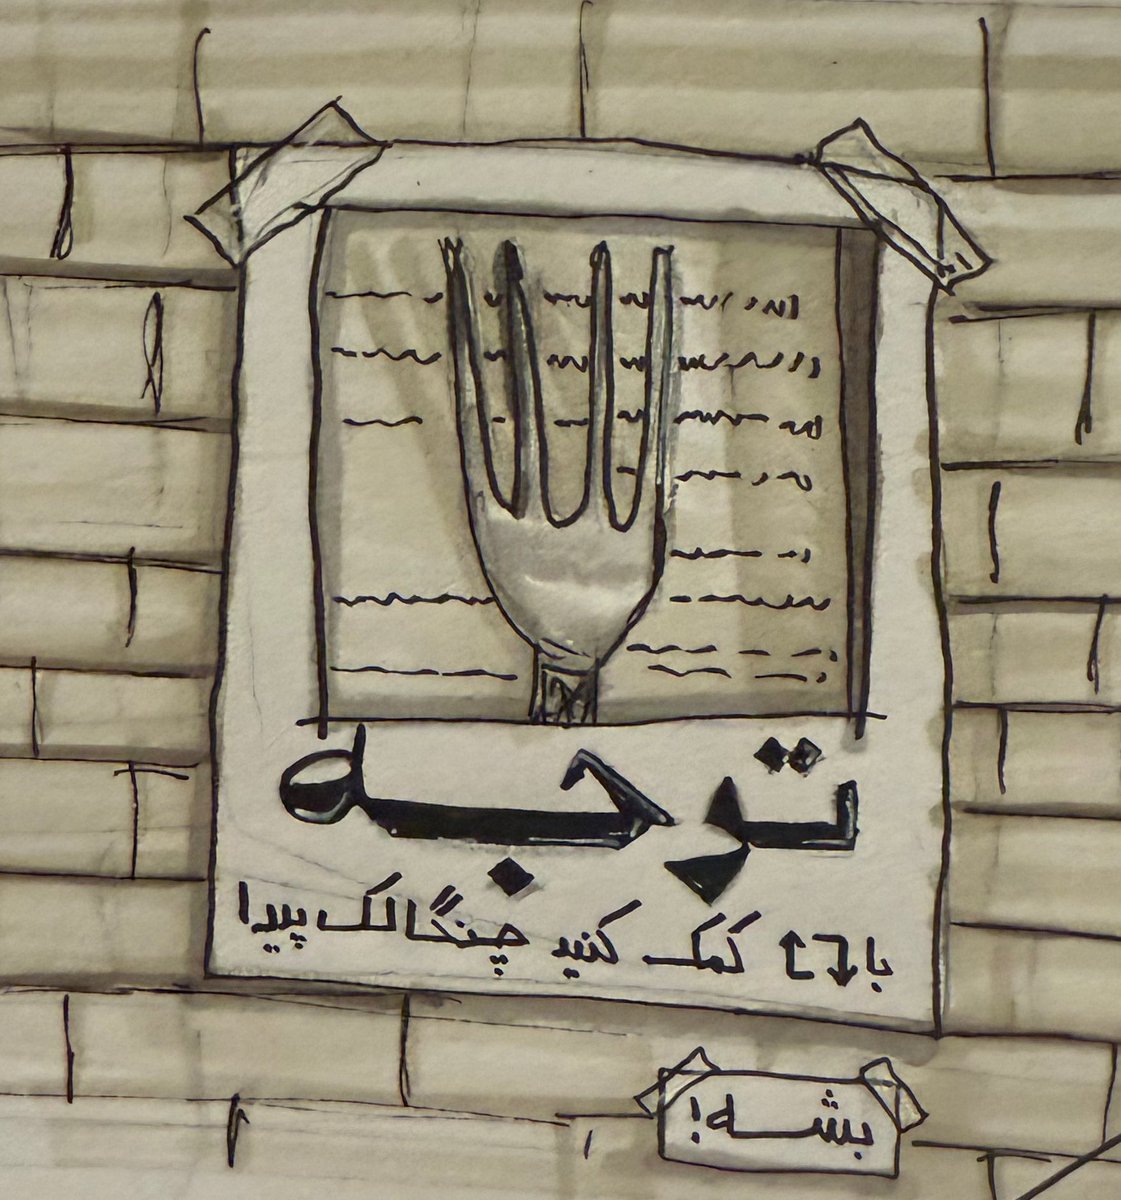 توجه
با کمک کنید چنگالک پیدا
بشه!